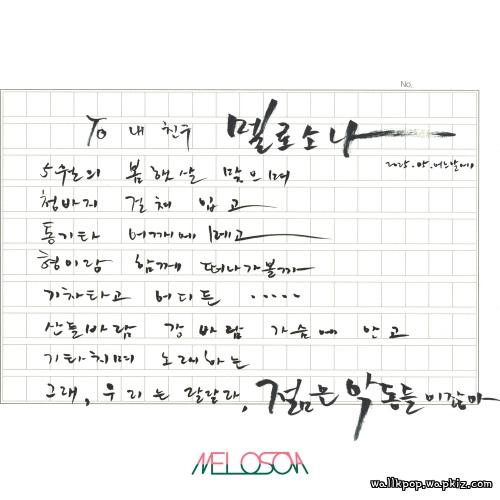 No.
To 내 친구 멜로소나
2025.05.어느날에
5월의 봄햇살 맞으며
청바지 걸쳐 입고
통기타 어깨에 메고
형이랑 함께 떠나가볼까
기차타고 어디든 .....
산들바람 강바람 가슴에 안고
기타치며 노래하는
그래, 우리는 랄랄라, 젊은 악동들 이잖아
MELOSONA
wallkpop.wapkiz.com